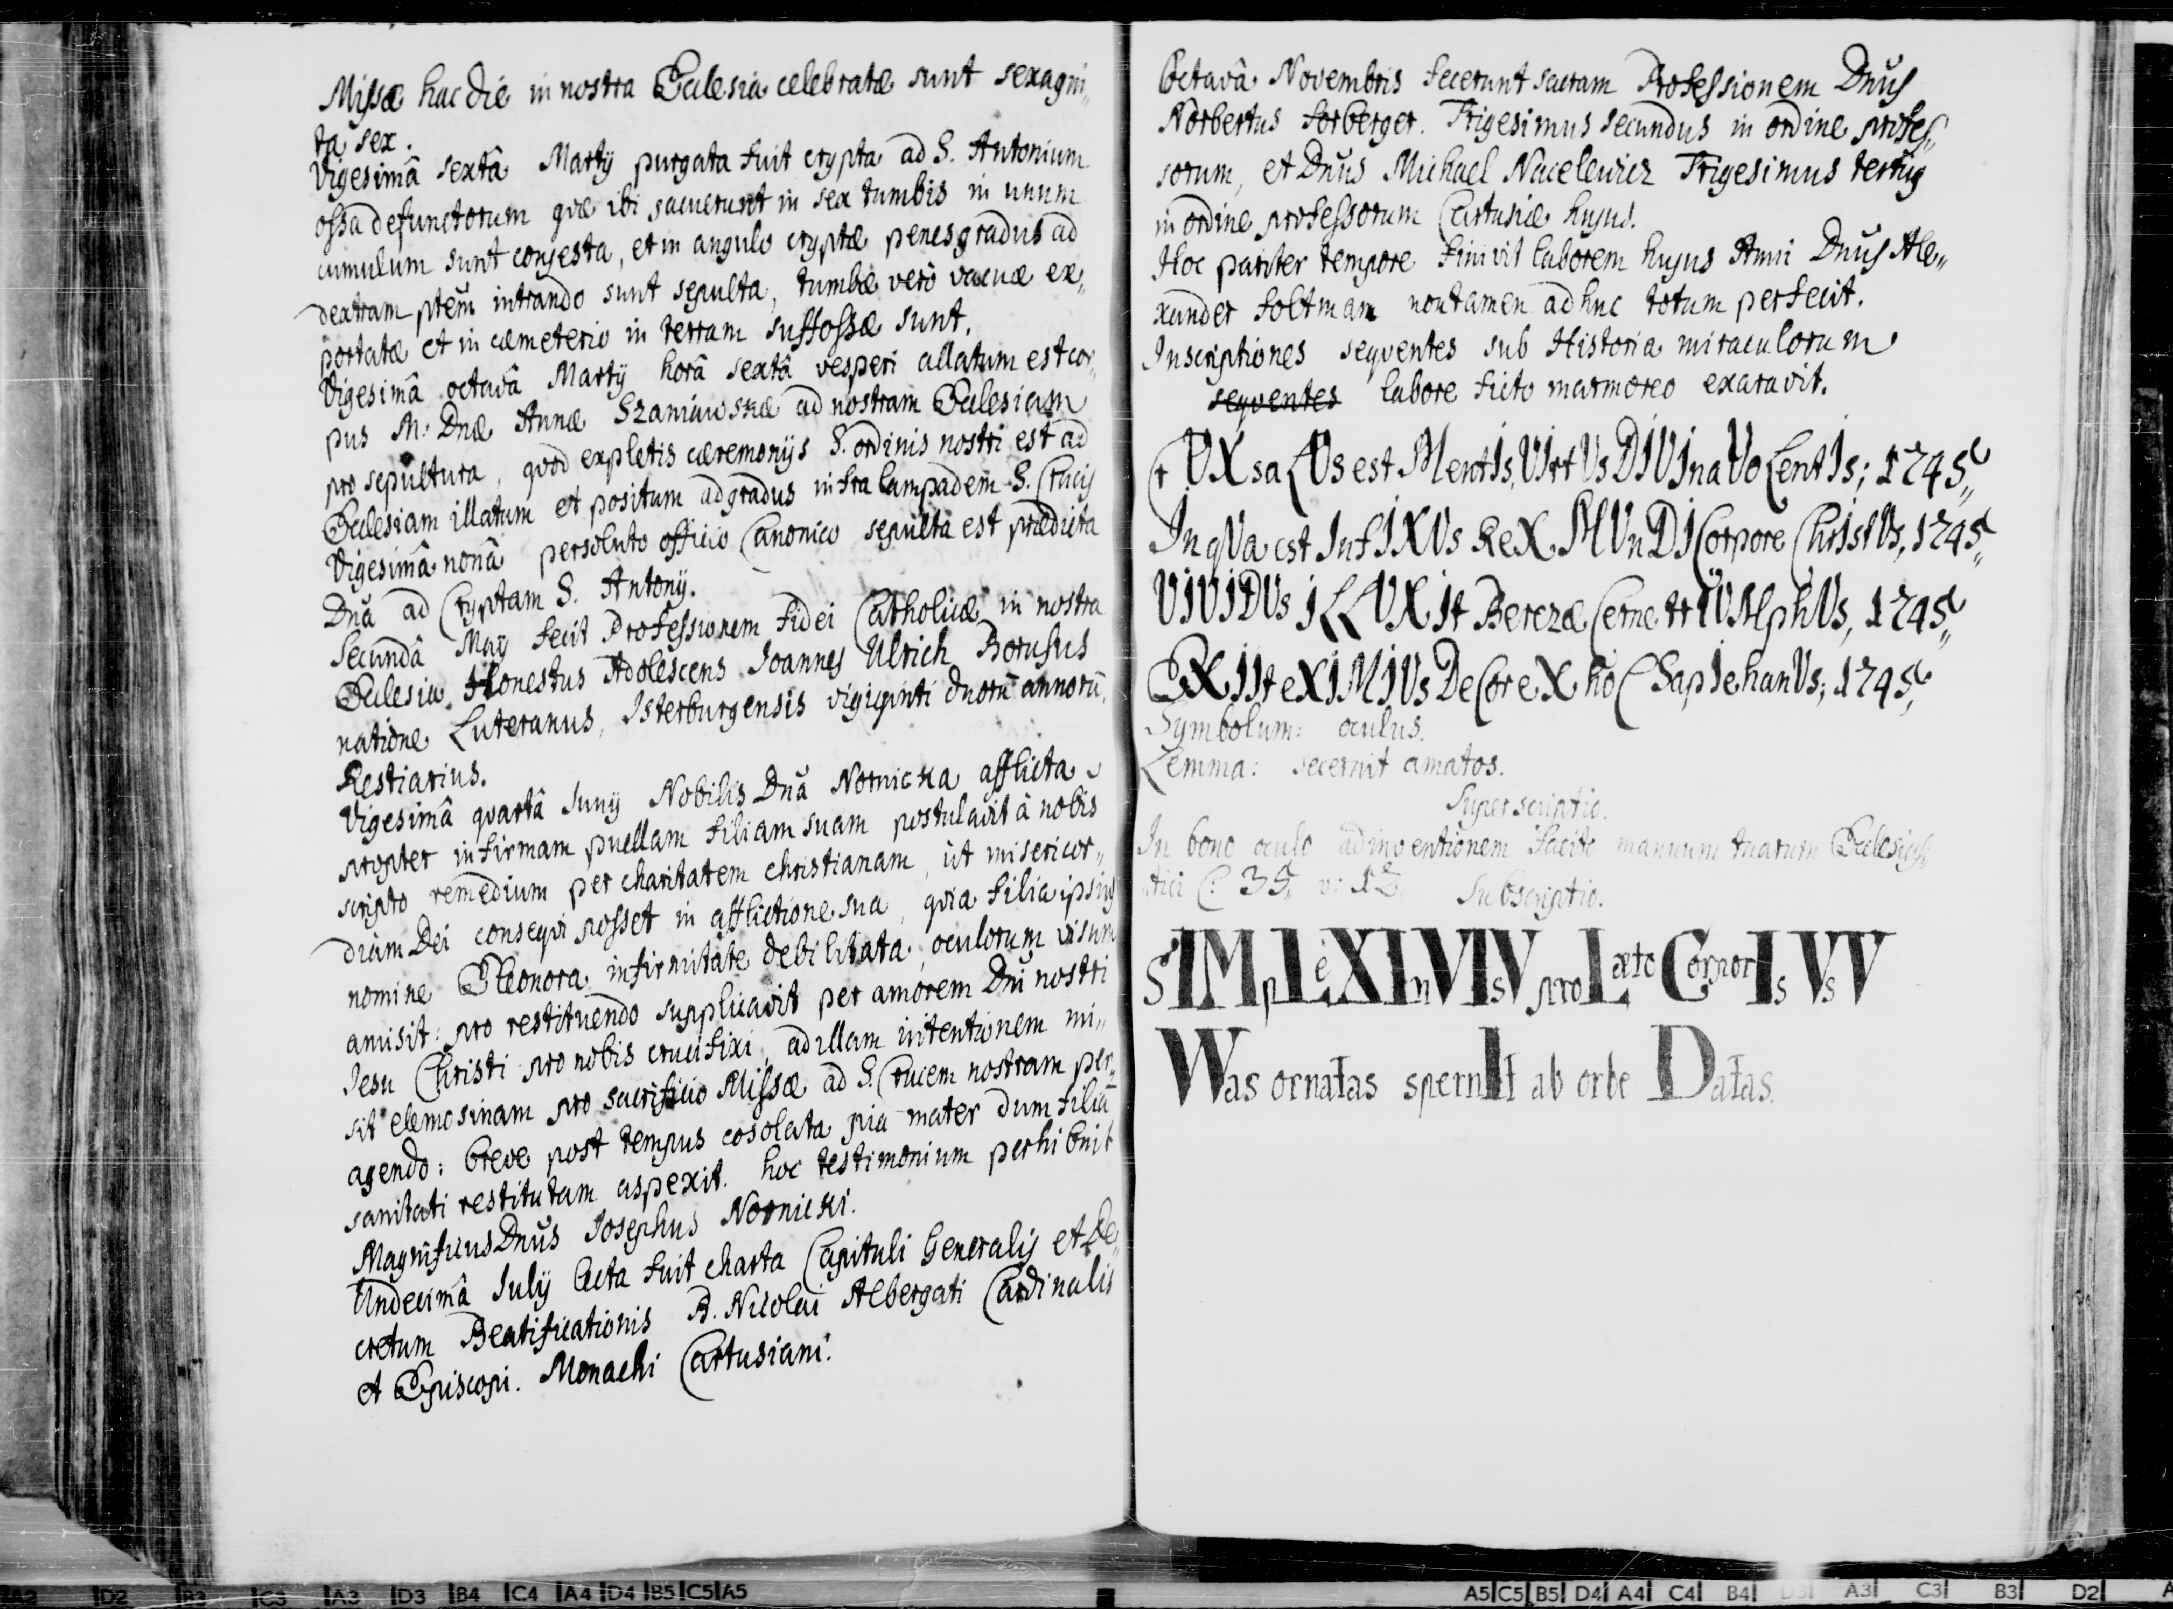 Missæ hac die in nostra Ecclesia celebratæ sunt sexagin„
ta sex.
Vigesimâ sextâ Martij purgata fuit crypta ad S. Antonium
ossa defunctorum qvæ ibi jacuerunt in sex tumbis in unum
cumulum sunt conjesta, et in angulo cryptæ penes gradus ad
dextram ptem̃ intrando sunt sepulta, tumbæ verò vacuæ ex„
portatæ et in cæmeterio in terram suffossæ sunt.
Vigesimâ octavâ Martij horâ sextâ vesperi allatum est cor„
pus M: Dnæ Annæ Szaniawskæ ad nostram Ecclesiam
pro sepultura, qvod expletis cæremonijs S. ordinis nostri est ad
Ecclesiam illatum et positum ad gradus infra lampadem S. Crucis
Vigesimâ nonâ persoluto officio Canonico sepulta est prædicta
Dnã ad Cryptam S. Antonij.
Secundâ Maij fecit Professionem Fidei Catholicæ in nostra
Ecclesia Honestus Adolescens Joannes Ulrich Borussus
natione Luteranus, Isterburgensis vigiginti duorũ annorũ,
Restiarius.
Vigesimâ qvartâ Junij Nobilis Dnã Nornicka afflicta
propter infirmam puellam filiam suam postulavit à nobis
scripto remedium per charitatem christianam, ut misericor„
diam Dei conseqvi posset in afflictione sua, qvia filia ipsius
nomine Eleonora infirmitate debilitata, oculorum visum
amisit: pro restituendo supplicavit per amorem Dni nostri
Jesu Christi pro nobis crucifixi, ad illam intentionem mi„
sit elemosinam pro sacrificio Missæ ad S. Crucem nostram per„
agendo: breve post tempus cosolata pia mater dum filiã
sanitati restitutam aspexit. hoc testimonium perhibuit
Magnificus Dnũs Josephus Nornicki.
Undecimâ Julij lecta fuit charta Capituli Generalis et De„
cretum Beatificationis B. Nicolai Albergati Cardinalis
et Episcopi. Monachi Cartusiani.
Octavâ Novembris fecerunt sacram Professionem Dnũs
Norbertus Forberger. Trigesimus secundus in ordine profes„
sorum, et Dnũs Michael Nacelewicz Trigesimus tertius
in ordine professorum Cartusiæ hujus.
Hoc pariter tempore finivit laborem hujus Anni Dnũs Ale„
xander Foltman non tamen adhuc totum perfecit.
Inscriptiones seqventes sub Historia miraculorum
seqventes labore ficto marmoreo exaravit.
CrUX saLUs est MentIs, VIrtUs DIVIna VoLentIs; 1745„
In qVa est InfIXUs ReX MUnDI Corpore ChrIstUs, 1745„
VIVIDUs ILLUXIt Berezæ Cerne trIUMphUs, 1745„
EXIIt eXIMIUs DeCor eX hoC SapIehanUs; 1745„
Symbolum: oculus.
Lemma: secernit amatos.
Superscriptio.
In bono oculo adinventionem facito manuum tuarum Ecclesias„
tici C: 35, v: 12. Subscriptio.
SIMpLeX In VIsV pro Læto CorporIs VsV
Was ornatas spernIt ab orbe Datas.